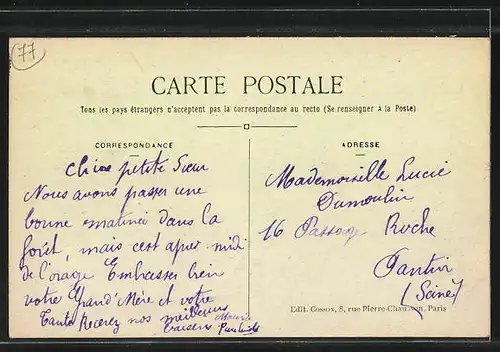 77
CARTE POSTALE
Tous les pays étrangers n'acceptent pas la correspondance au recto (Se renseigner à la Poste)
CORRESPONDANCE
Chère petite Sœur
Nous avons passer une
bonne matinée dans la
forêt, mais cert apres midi
de l'orage Embrasser bien
votre Grand'Mère et votre
Tante Recevez nos meilleurs
baisers Maurice
ADRESSE
Mademoiselle Lucie
Dumoulin
16 Passage Roche
Pantin
(Seine)
Edit. Cossox, 8, rue Pierre-Chausson, Paris